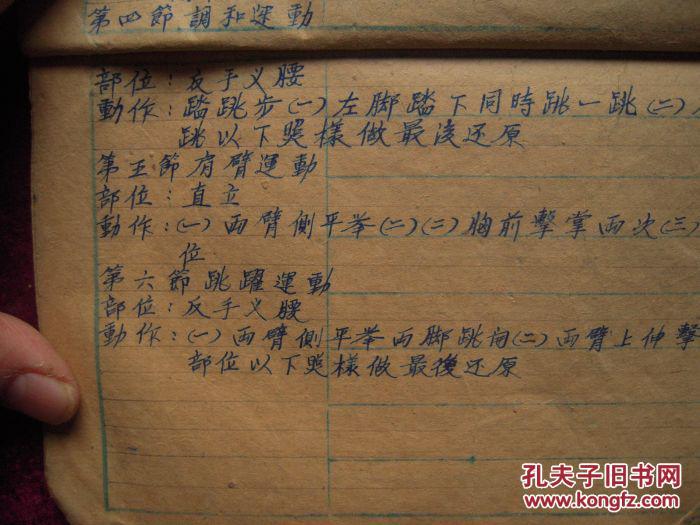 第四節調和运動
部位：反手义腰
動作：踏跳步(一)左脚踏下同時跳一跳(二)
跳以下照樣做最後还原
第五節肩臂運動
部位：直立
動作：(一)両臂側平举(二)(二)胸前擊掌両次(三)
位
第六節跳躍運動
部位：反手义腰
動作：(一)両臂側平举両脚跳间(二)両臂上伸擊
部位以下照樣做最後还原
孔夫子旧书网
www.kongfz.com